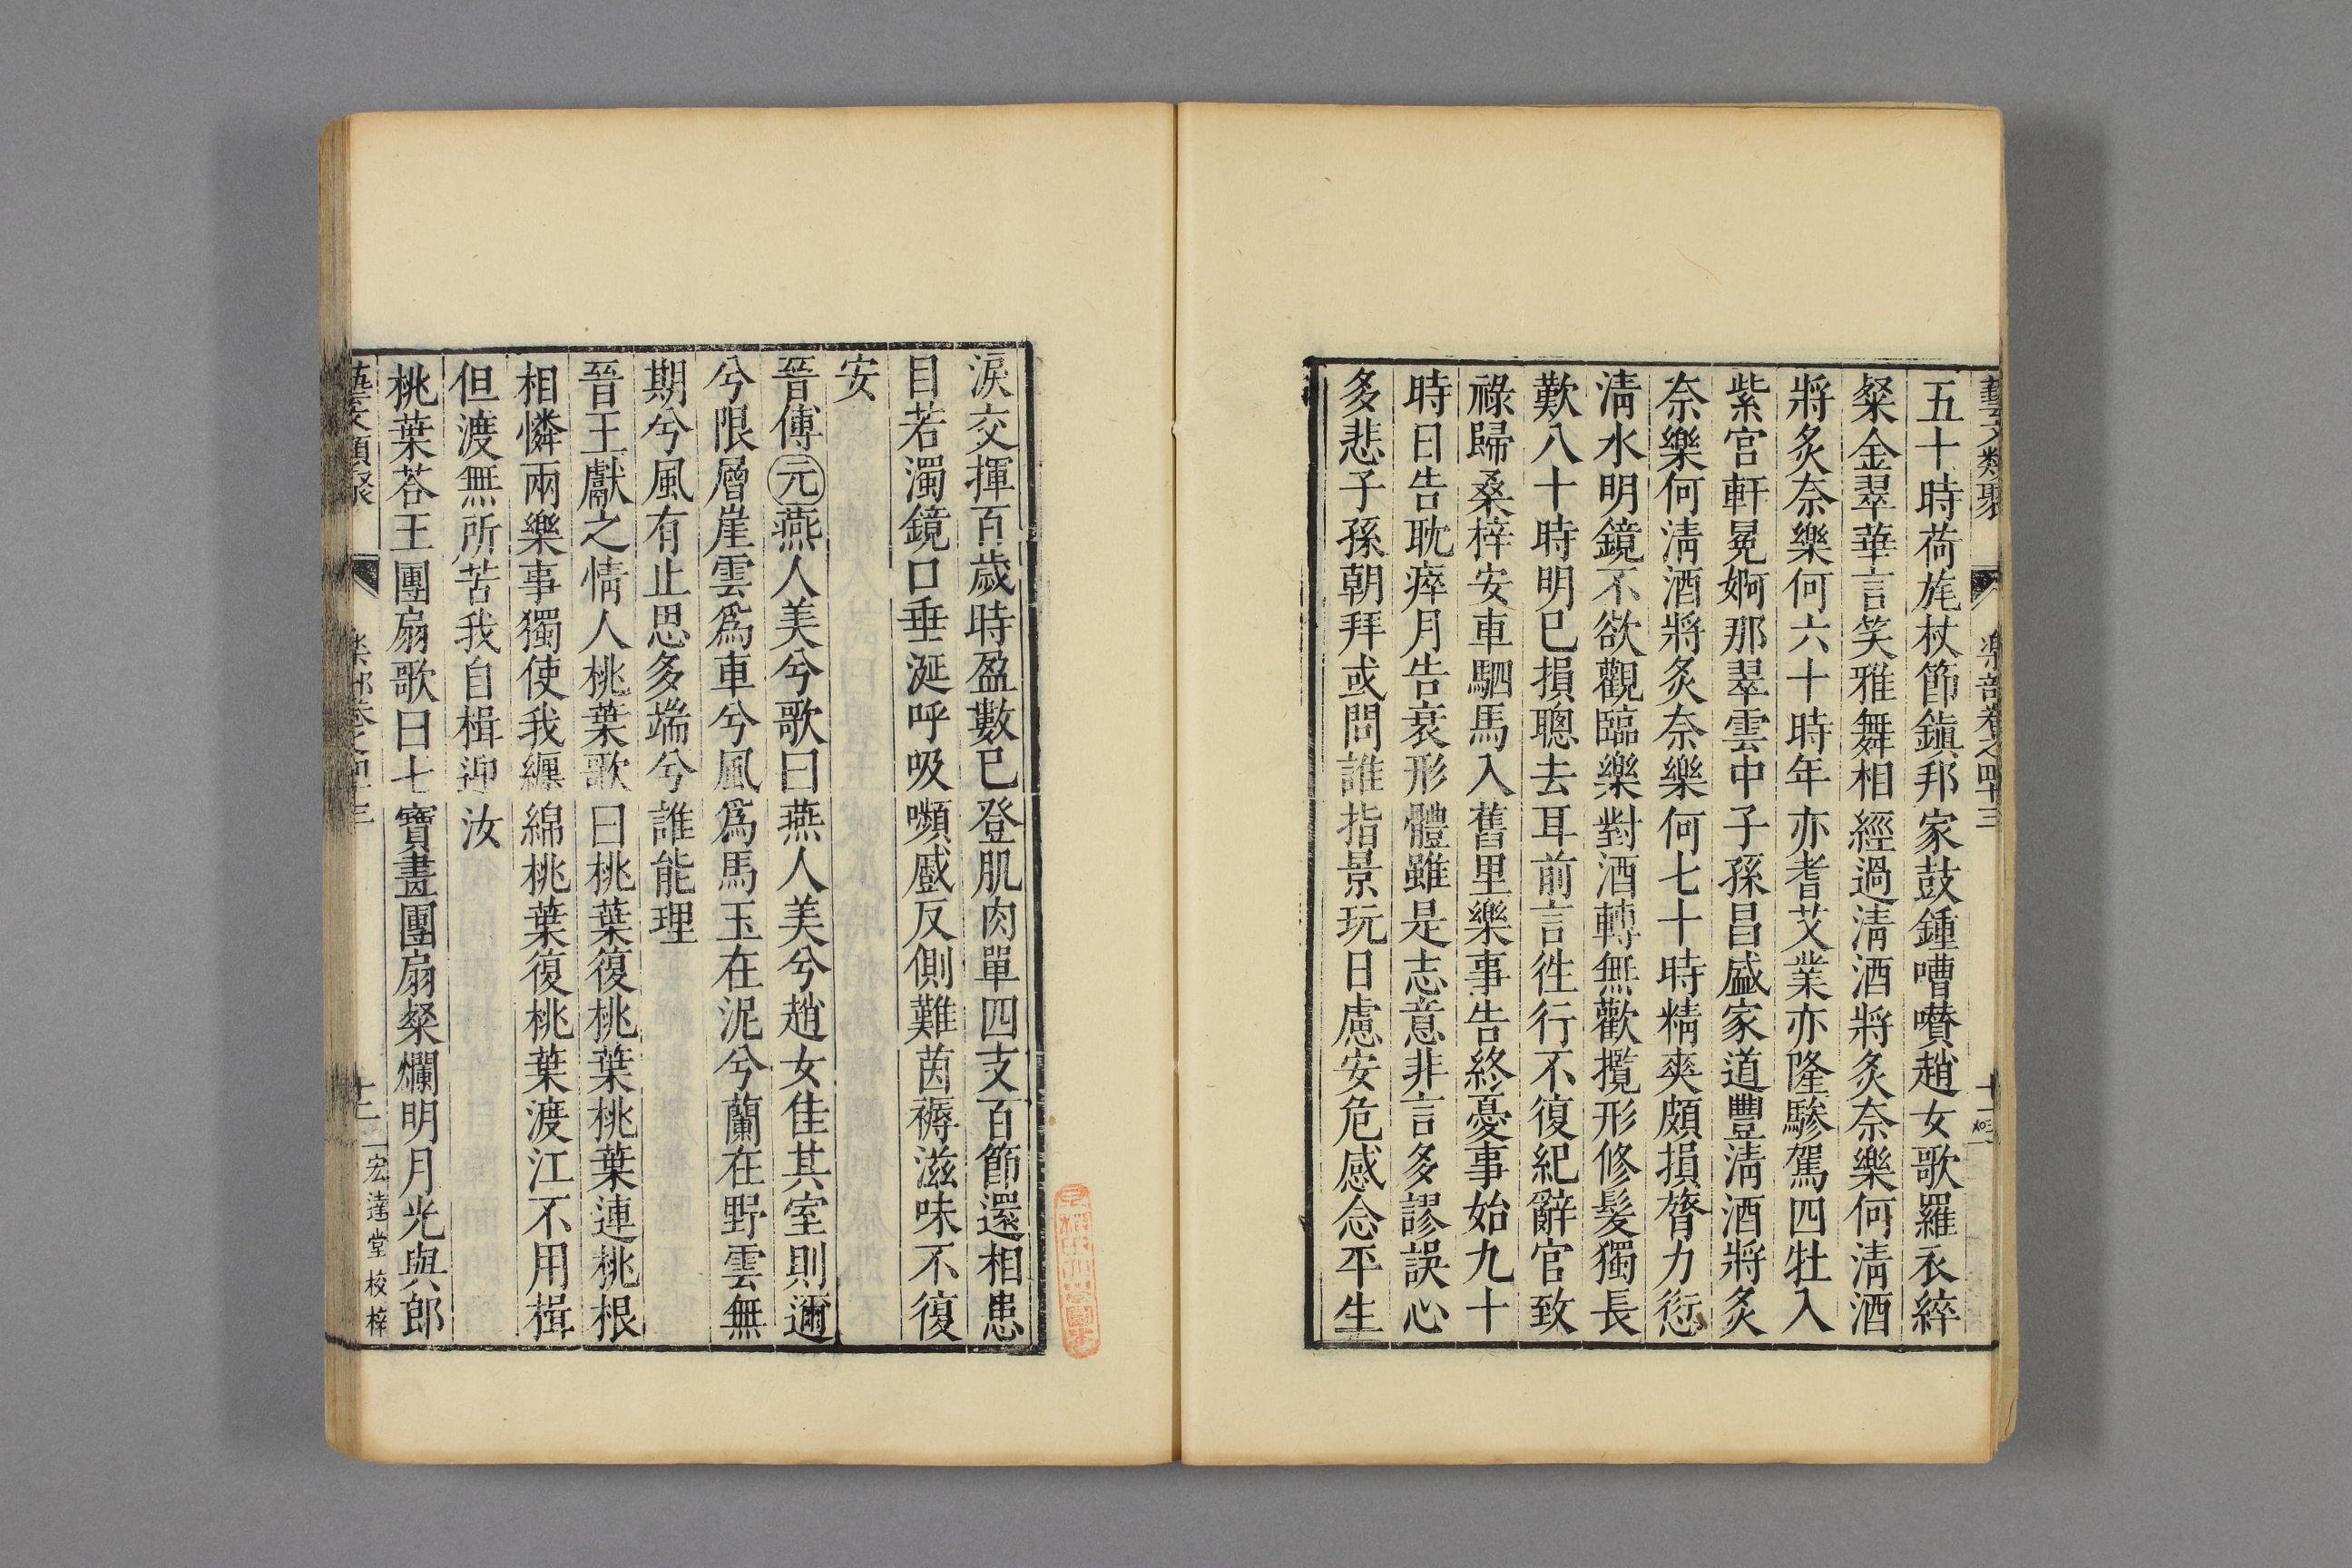 藝文類聚 樂部卷之四十三 十一
五十時荷旄杖節鎮邦家鼓鍾嘈囋趙女歌羅衣綷
粲金翠華言笑雅舞相經過清酒將炙奈樂何清酒
將炙奈樂何六十時年亦耆艾業亦隆驂駕四牡入
紫宮軒冕婀那翠雲中子孫昌盛家道豐清酒將炙
奈樂何清酒將炙奈樂何七十時精爽頗損膂力愆
清水明鏡不欲觀臨樂對酒轉無歡攬形修髮獨長
歎八十時明已損聰去耳前言徃行不復紀辭官致
祿歸桑梓安車駟馬入舊里樂事告終憂事始九十
時日告耽瘁月告衰形體雖是志意非言多謬誤心
多悲子孫朝拜或問誰指景玩日慮安危感念平生
淚交揮百歲時盈數已登肌肉單四支百節還相患
目若濁鏡口垂涎呼吸嚬慼反側難茵褥滋味不復
安
晉傅元燕人美兮歌曰燕人美兮趙女佳其室則邇
兮限層崖雲爲車兮風爲馬玉在泥兮蘭在野雲無
期兮風有止思多端兮誰能理
晉王獻之情人桃葉歌曰桃葉復桃葉桃葉連桃根
相憐兩樂事獨使我纏綿桃葉復桃葉渡江不用楫
但渡無所苦我自楫迎汝
桃葉荅王團扇歌曰七寶畫團扇粲爛明月光與郎
藝文類聚 樂部卷之四十三 十二 宏達堂校梓